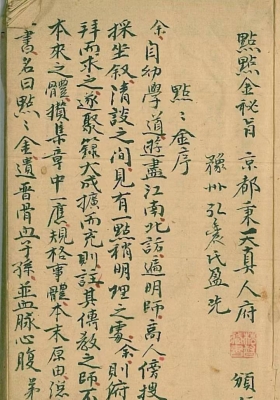 點點金秘旨 京都秉天真人府 頒行
豫州弘農氏盈先
點〻金序
余自幼學道遊盡江南北訪遍明師高人傍搜
採坐叙清談之間見有一點稍明理之處余則府
拜而求之遂聚籙大成擴而充則註其傳教之師
本來之體積集章中一應規格事體本末原由
書名曰點〻金遺晋骨血子孫並血脉心腹弟